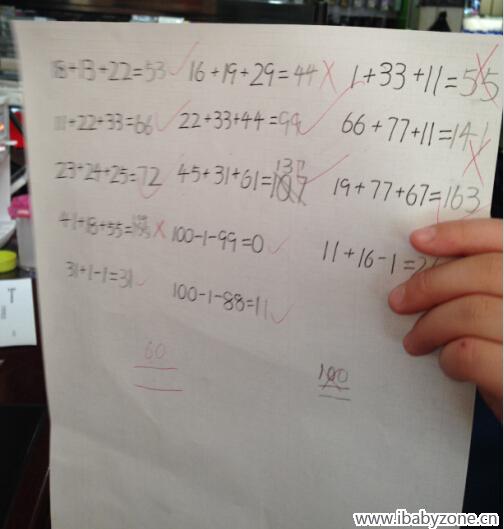 18+13+22=53 16+19+29=44 1+33+11=55
11+22+33=66 22+33+44=99 66+77+11=141
23+24+25=72 45+31+61=137 19+77+67=163
41+18+55= 100-1-99=0 11+16-1=
31+1-1=31 100-1-88=11
60 100
T
www.ibabyzone.cn